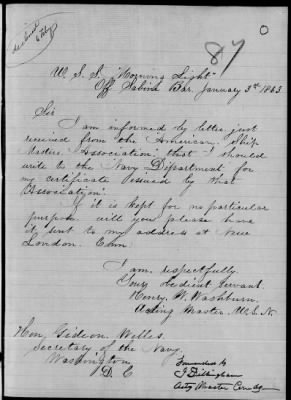 87
U.S.S. "Morning Light"
Off Sabine Bar, January 3rd 1863
Sir
I am informed by letter just
received from the "American Ship
Masters Association" that I should
write to the Navy Department for
my certificate issued by that
Association.
If it is kept for no particular
purpose will you please have
it sent to my address at New
London. Conn.
I am respectfully
Your obedient servant.
Henry W. Washburn.
Acting Master U.S.N.
Hon. Gideon Welles.
Secretary of the Navy.
Washington
D. C
Forwarded by
J Dillingham
Actg Master Comdg